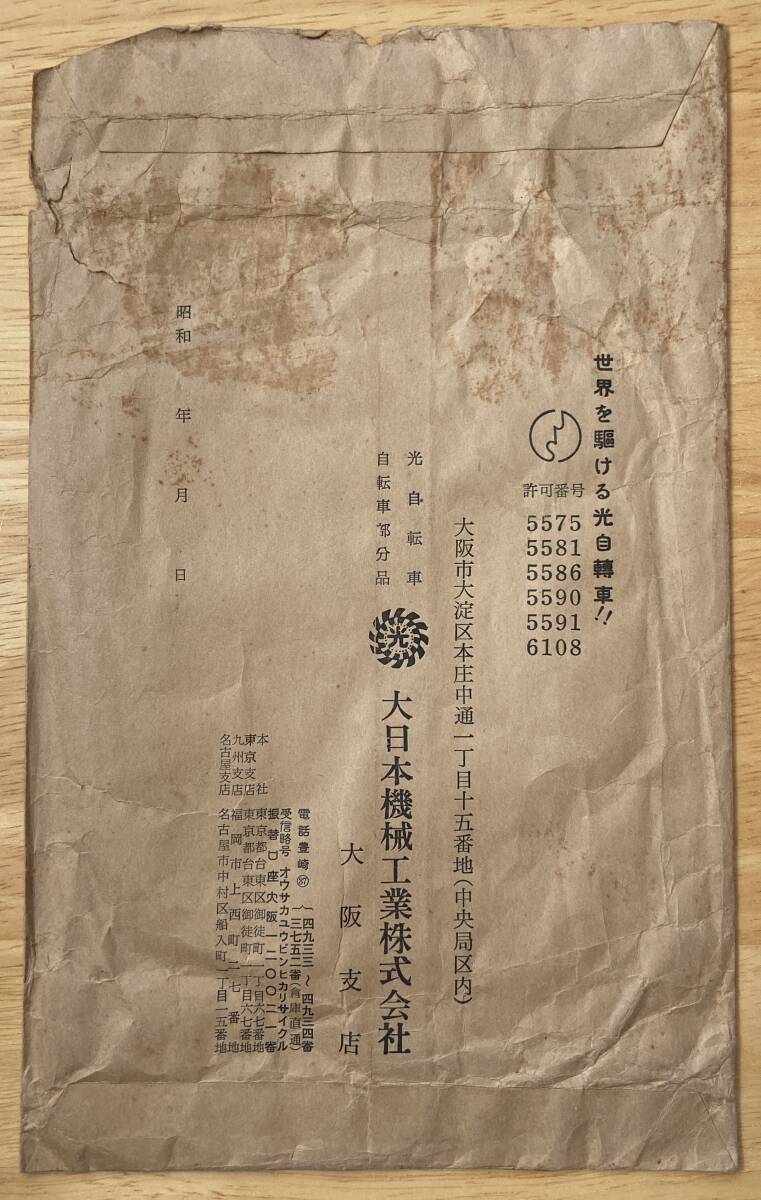 世界を駆ける光自轉車!!
許可番号
5575
5581
5586
5590
5591
6108
大阪市大淀区本庄中通一丁目十五番地(中央局区内)
光自転車
自転車部分品
光
大日本機械工業株式会社
大阪支店
電話豊崎㊲
四九三三〜四九三四番
三七五二番(倉庫直通)
受信略号 オウサカユウビンヒカリサイクル
振替口座大阪一二〇〇二一番
本社 東京都台東区御徒町一丁目六七番地
東京支店 東京都台東区御徒町一丁目六七番地
九州支店 福岡市上西町二七番地
名古屋支店 名古屋市中村区船入町一丁目一五番地
昭和 年 月 日